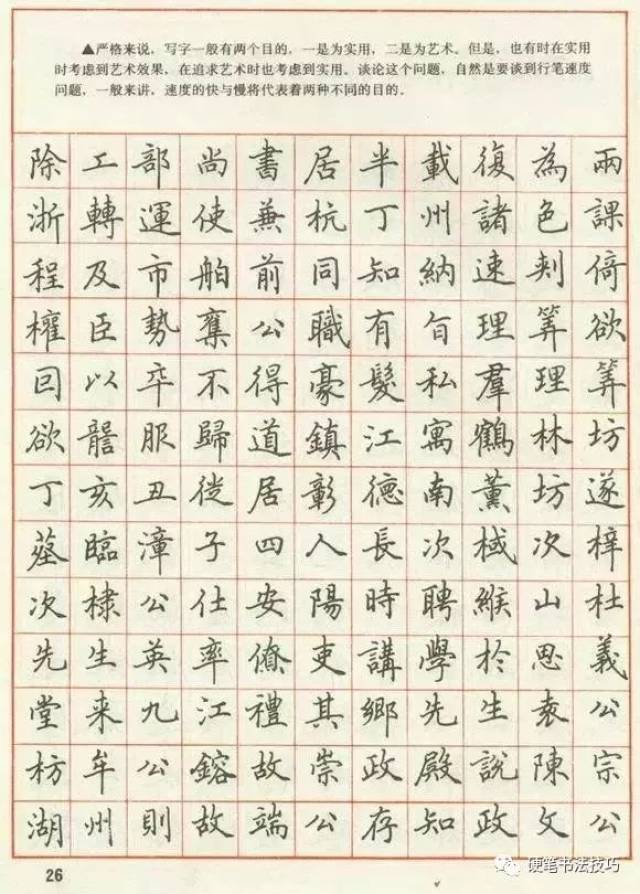 ▲严格来说，写字一般有两个目的，一是为实用，二是为艺术。但是，也有时在实用
时考虑到艺术效果，在追求艺术时也考虑到实用。谈论这个问题，自然是要谈到行笔速度
问题，一般来讲，速度的快与慢将代表着两种不同的目的。
除工部尚書居半載復為兩
浙轉運使兼杭丁州諸色課
程及市舶前同知納速剌倚
權臣勢奪公職有旨理筭欲
回以卒不得豪髮私羣理筭
欲諮服歸道鎮江寓鶴林坊
丁亥丑徙居彰德南薰坊遂
墓臨漳子四人長次棫次梓
次棣公仕安陽時聘緱山杜
先生英率僚吏講學於思義
堂来九江禮其鄉先生袁公
枋牟公鎔故崇政殿說陳宗
湖州則故端公存知政文公
26
硬笔书法技巧